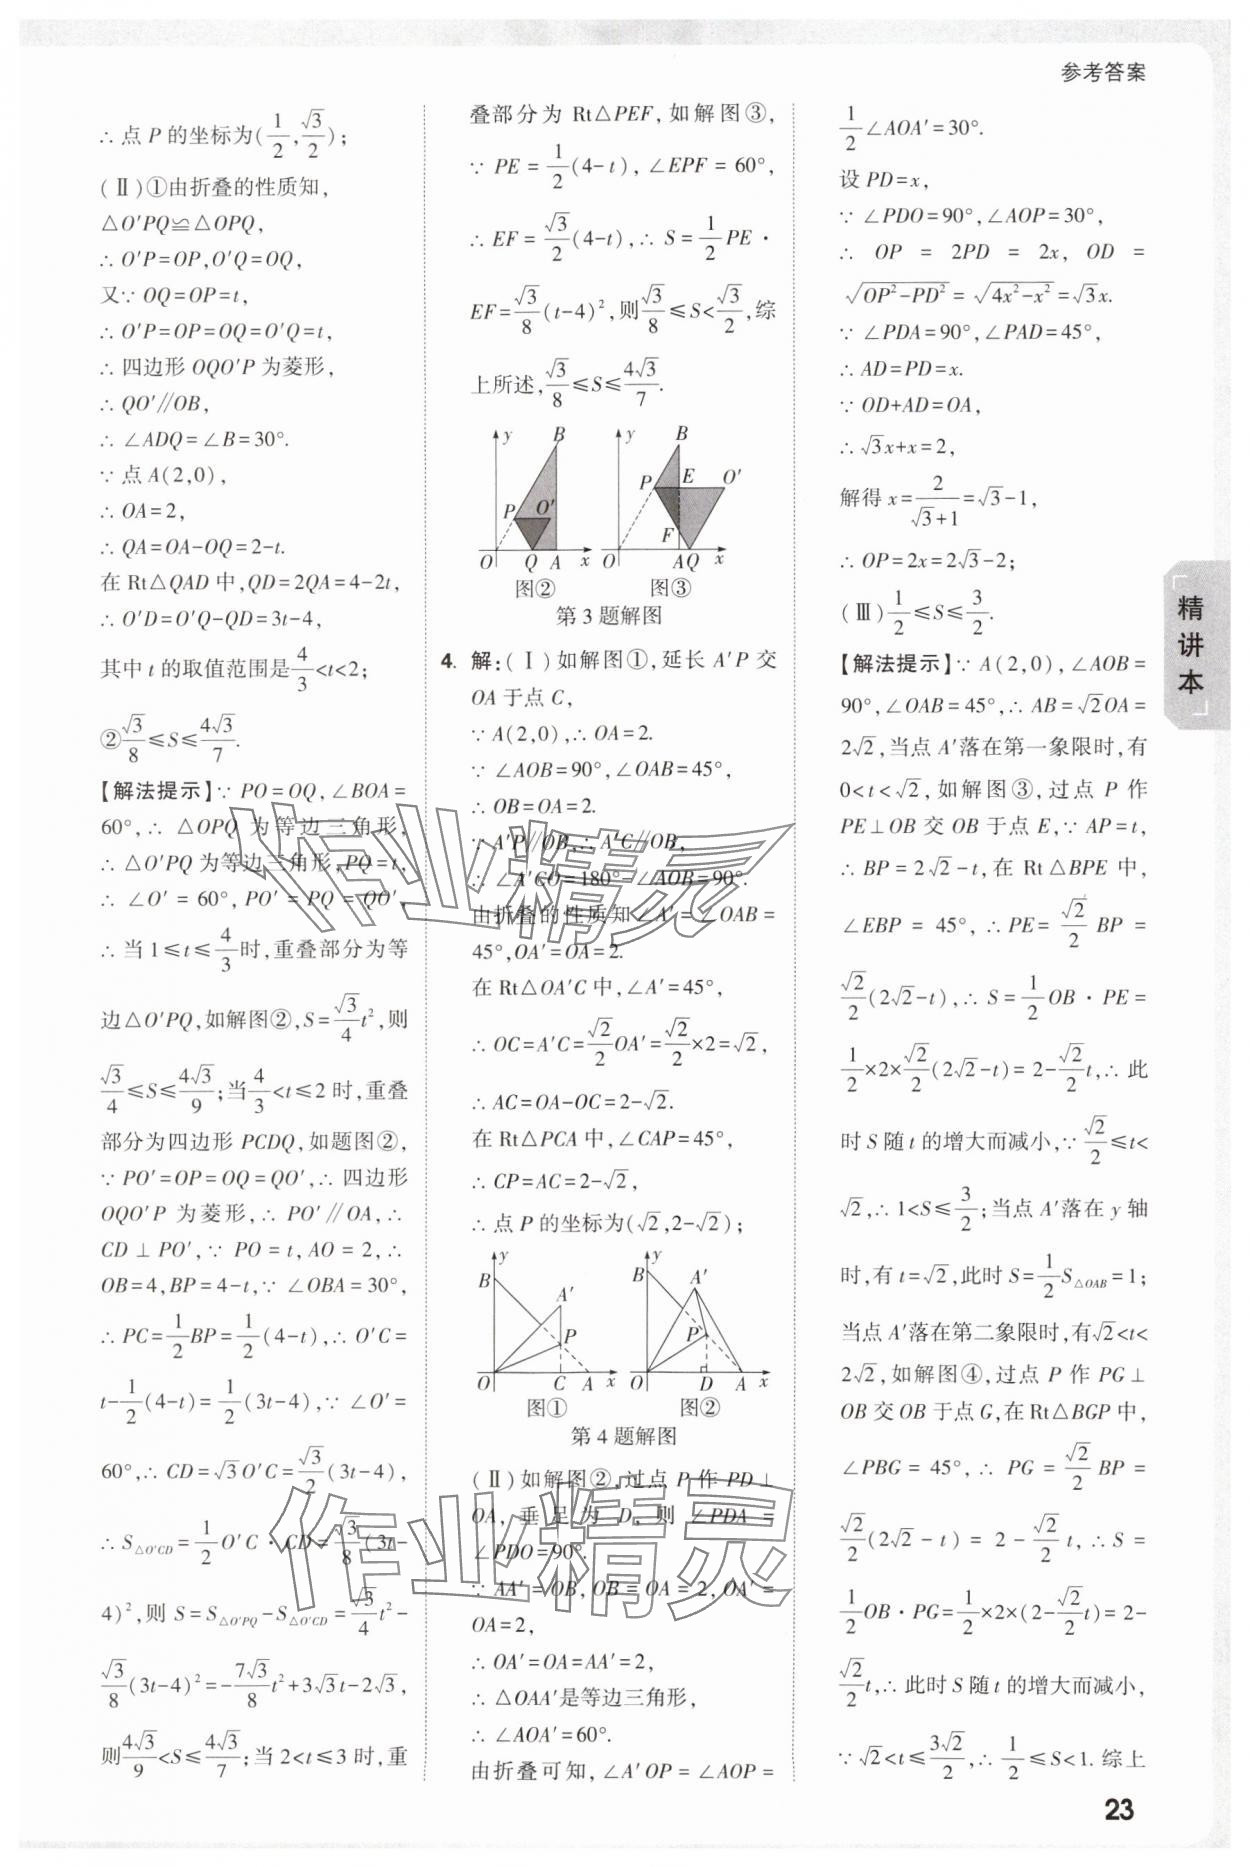 参考答案
∴点 P 的坐标为(1/2,√3/2);
(Ⅱ)①由折叠的性质知,
△O′PQ≌△OPQ,
∴O′P=OP,O′Q=OQ,
又∵OQ=OP=t,
∴O′P=OP=OQ=O′Q=t,
∴四边形 OQO′P 为菱形,
∴QO′∥OB,
∴∠ADQ=∠B=30°.
∵点 A(2,0),
∴OA=2,
∴QA=OA-OQ=2-t.
在 Rt△QAD 中,QD=2QA=4-2t,
∴O′D=O′Q-QD=3t-4,
其中 t 的取值范围是4/3<t<2;
②√3/8≤S≤4√3/7.
【解法提示】∵PO=OQ,∠BOA=
60°,∴△OPQ 为等边三角形,
∴△O′PQ 为等边三角形,PQ=t,
∴∠O′=60°,PO′=PQ=QO′,
∴当 1≤t≤4/3时,重叠部分为等
边△O′PQ,如解图②,S=√3/4 t²,则
√3/4≤S≤4√3/9;当4/3<t≤2 时,重叠
部分为四边形 PCDQ,如题图②,
∵PO′=OP=OQ=QO′,∴四边形
OQO′P 为菱形,∴PO′∥OA,∴
CD⊥PO′,∵PO=t,AO=2,∴
OB=4,BP=4-t,∵∠OBA=30°,
∴PC=1/2 BP=1/2(4-t),∴O′C=
t-1/2(4-t)=1/2(3t-4),∵∠O′=
60°,∴CD=√3O′C=√3/2(3t-4),
∴S△O′CD=1/2 O′C·CD=√3/8(3t-
4)²,则 S=S△O′PQ-S△O′CD=√3/4 t²-
√3/8(3t-4)²=-7√3/8 t²+3√3t-2√3,
则4√3/9<S≤4√3/7;当 2<t≤3 时,重
叠部分为 Rt△PEF,如解图③,
∵PE=1/2(4-t),∠EPF=60°,
∴EF=√3/2(4-t),∴S=1/2 PE·
EF=√3/8(t-4)²,则√3/8≤S<√3/2,综
上所述,√3/8≤S≤4√3/7.
y B P O′ O Q A x
y B P E O′ F O A Q x
图② 图③
第 3 题解图
4. 解:(Ⅰ)如解图①,延长 A′P 交
OA 于点 C,
∵A(2,0),∴OA=2.
∵∠AOB=90°,∠OAB=45°,
∴OB=OA=2.
∵A′P∥OB,∴A′C∥OB,
∴∠A′CO=180°-∠AOB=90°.
由折叠的性质知∠A′=∠OAB=
45°,OA′=OA=2.
在 Rt△OA′C 中,∠A′=45°,
∴OC=A′C=√2/2 OA′=√2/2×2=√2,
∴AC=OA-OC=2-√2.
在 Rt△PCA 中,∠CAP=45°,
∴CP=AC=2-√2,
∴点 P 的坐标为(√2,2-√2);
y B A′ P O C A x
y B A′ P O D A x
图① 图②
第 4 题解图
(Ⅱ)如解图②,过点 P 作 PD⊥
OA,垂足为 D,则∠PDA=
∠PDO=90°.
∵AA′=OB,OB=OA=2,OA′=
OA=2,
∴OA′=OA=AA′=2,
∴△OAA′是等边三角形,
∴∠AOA′=60°.
由折叠可知,∠A′OP=∠AOP=
1/2∠AOA′=30°.
设 PD=x,
∵∠PDO=90°,∠AOP=30°,
∴OP=2PD=2x,OD=
√(OP²-PD²)=√(4x²-x²)=√3x.
∵∠PDA=90°,∠PAD=45°,
∴AD=PD=x.
∵OD+AD=OA,
∴√3x+x=2,
解得 x=2/(√3+1)=√3-1,
∴OP=2x=2√3-2;
(Ⅲ)1/2≤S≤3/2.
【解法提示】∵A(2,0),∠AOB=
90°,∠OAB=45°,∴AB=√2OA=
2√2,当点 A′落在第一象限时,有
0<t<√2,如解图③,过点 P 作
PE⊥OB 交 OB 于点 E,∵AP=t,
∴BP=2√2-t,在 Rt△BPE 中,
∠EBP=45°,∴PE=√2/2 BP=
√2/2(2√2-t),∴S=1/2 OB·PE=
1/2×2×√2/2(2√2-t)=2-√2/2 t,∴此
时 S 随 t 的增大而减小,∵√2/2≤t<
√2,∴1<S≤3/2;当点 A′落在 y 轴
时,有 t=√2,此时 S=1/2 S△OAB=1;
当点 A′落在第二象限时,有√2<t<
2√2,如解图④,过点 P 作 PG⊥
OB 交 OB 于点 G,在 Rt△BGP 中,
∠PBG=45°,∴PG=√2/2 BP=
√2/2(2√2-t)=2-√2/2 t,∴S=
1/2 OB·PG=1/2×2×(2-√2/2 t)=2-
√2/2 t,∴此时 S 随 t 的增大而减小,
∵√2<t≤3√2/2,∴1/2≤S<1.综上
精讲本
作业精灵
作业精灵
23